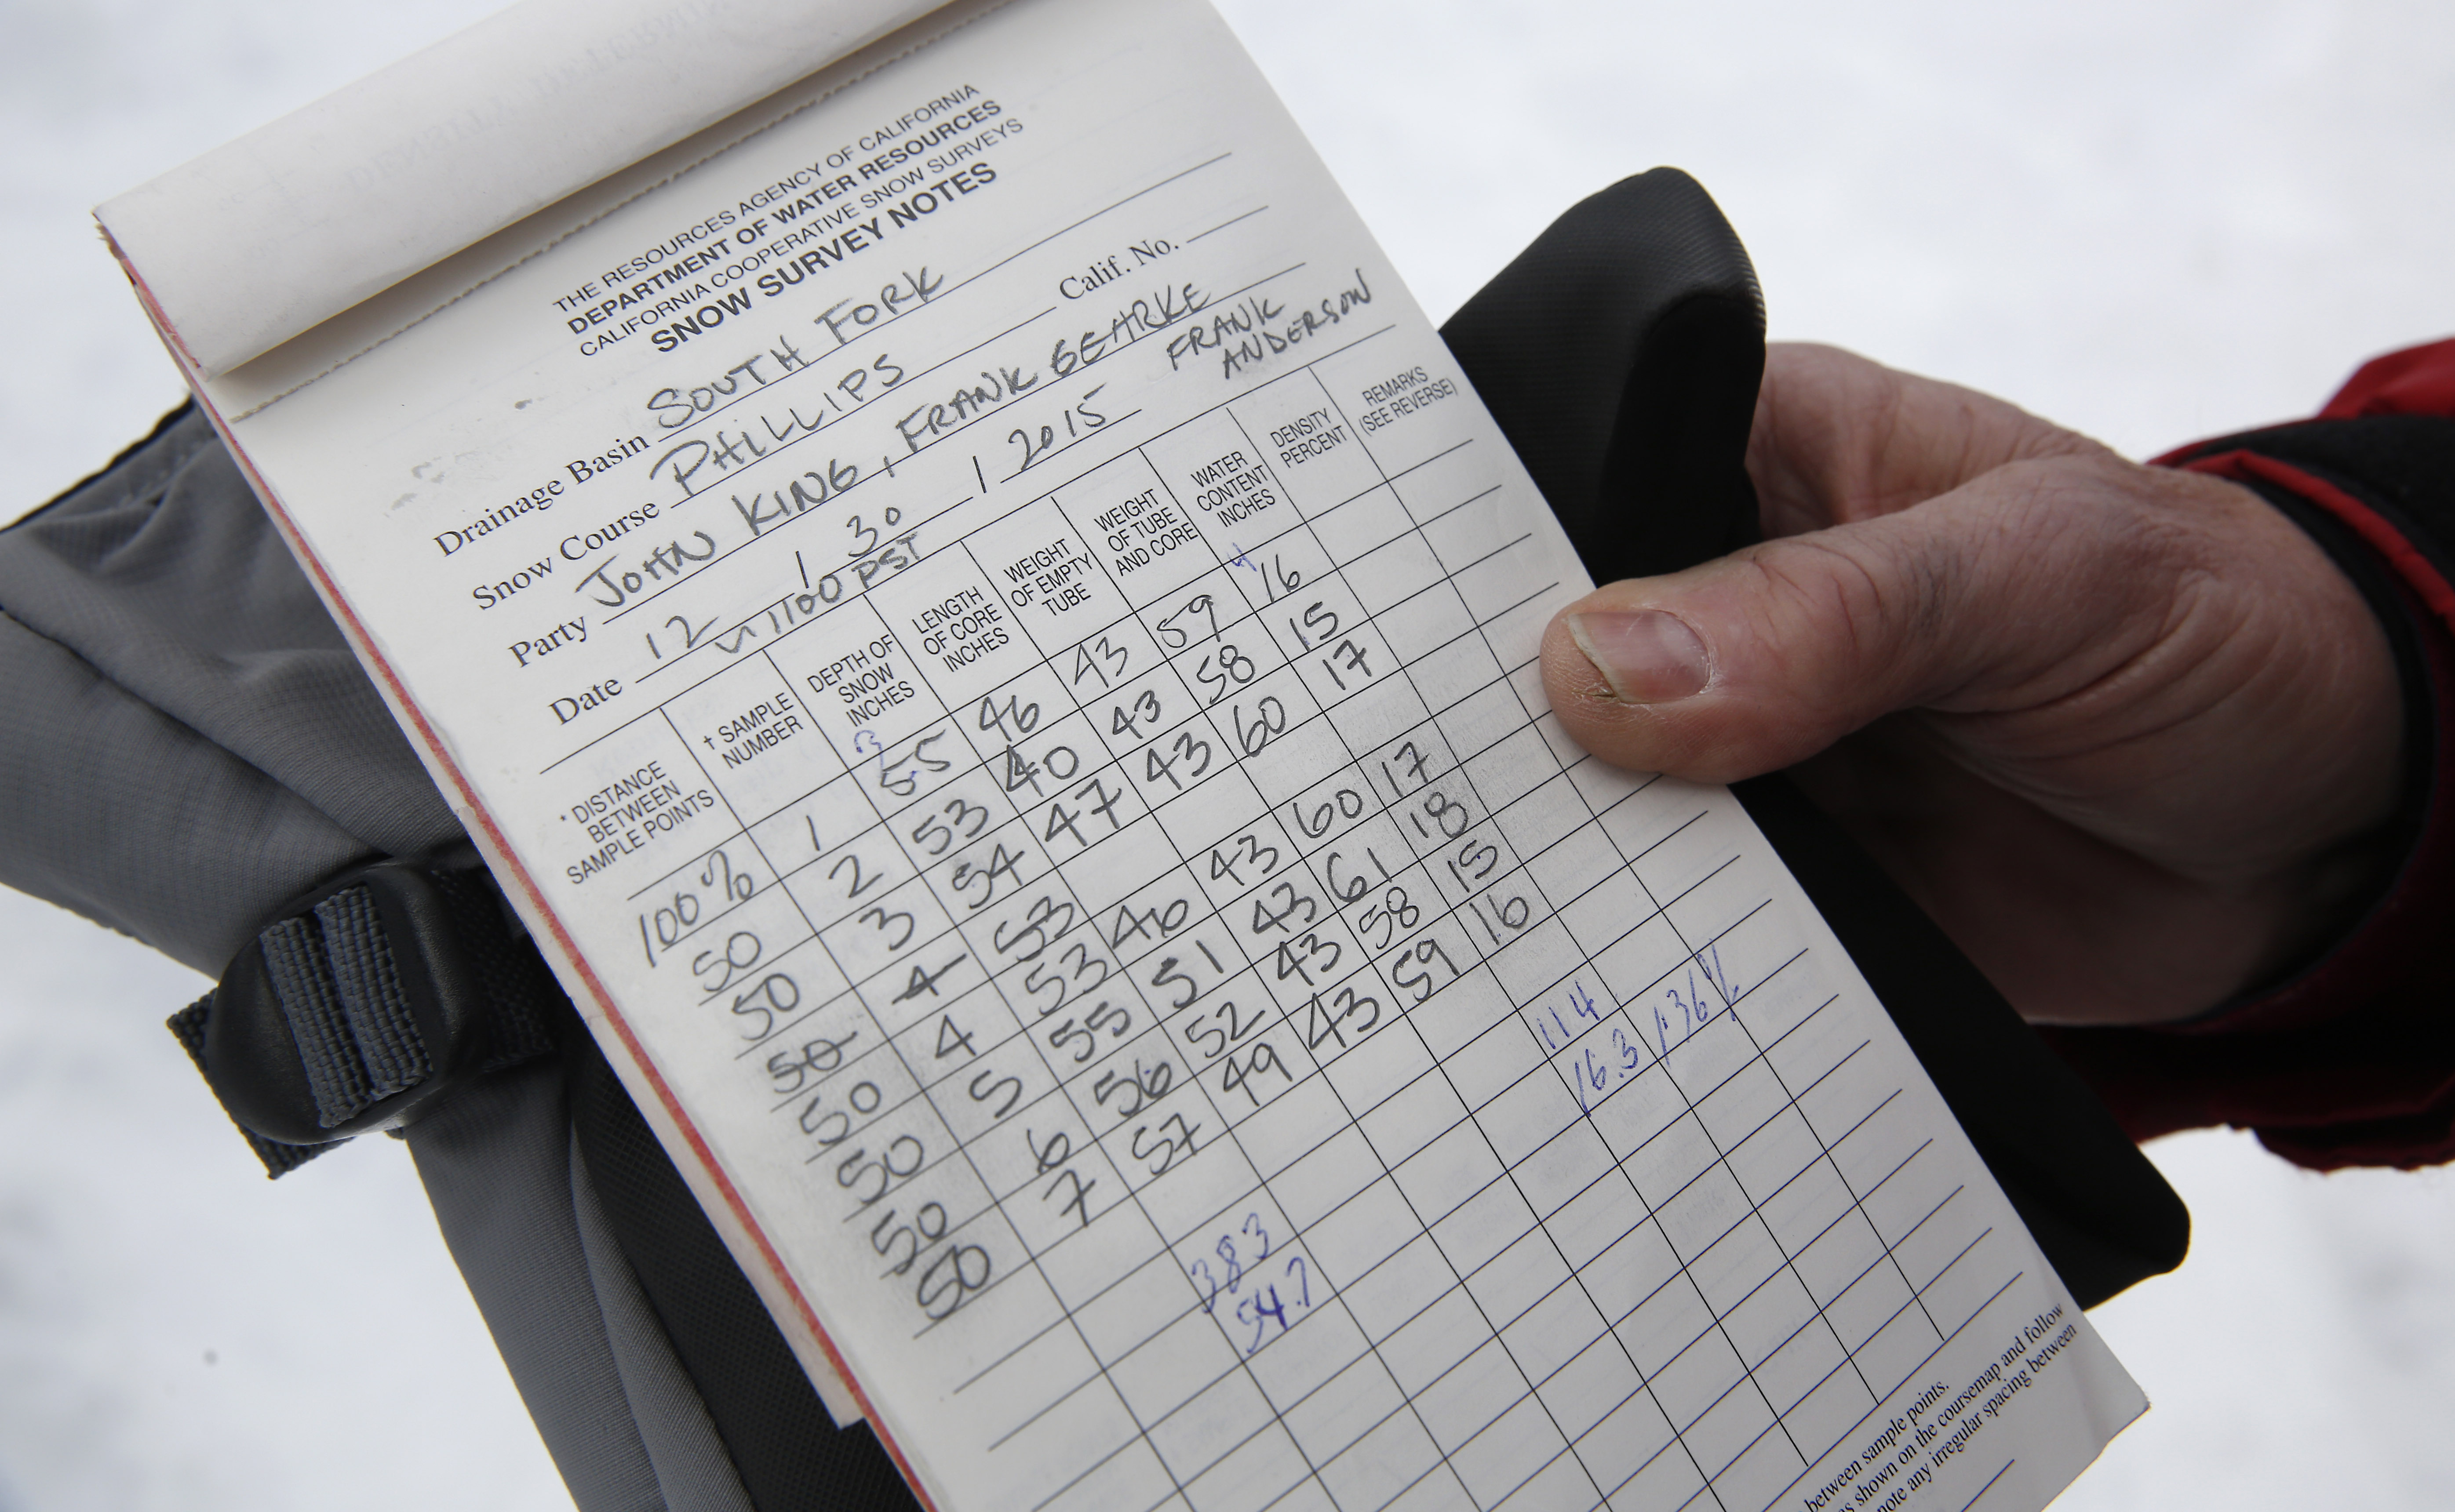 THE RESOURCES AGENCY OF CALIFORNIA
DEPARTMENT OF WATER RESOURCES
CALIFORNIA COOPERATIVE SNOW SURVEYS
SNOW SURVEY NOTES
Drainage Basin SOUTH FORK
Snow Course PHILLIPS Calif. No.
Party JOHN KING, FRANK GEHRKE FRANK ANDERSON
Date 12 / 30 / 2015
~ 1100 PST
* DISTANCE BETWEEN SAMPLE POINTS † SAMPLE NUMBER DEPTH OF SNOW INCHES LENGTH OF CORE INCHES WEIGHT OF EMPTY TUBE WEIGHT OF TUBE AND CORE WATER CONTENT INCHES DENSITY PERCENT REMARKS (SEE REVERSE)
100% 1 55 46 43 59 16
50 2 53 40 43 58 15
50 3 54 47 43 60 17
50 4 53
50 4 53 46 43 60 17
50 5 55 51 43 61 18
50 6 56 52 43 58 15
50 7 57 49 43 59 16
383 114
54.7 16.3 /136%
between sample points.
s shown on the coursemap and follow
note any irregular spacing between